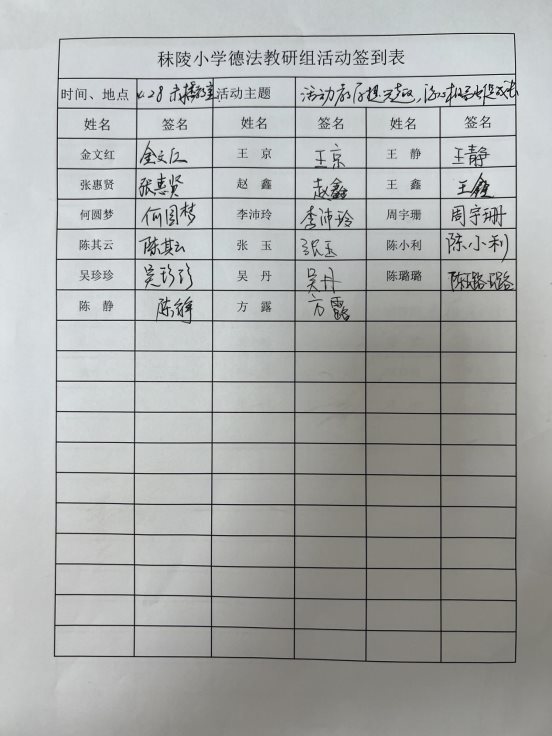 秣陵小学德法教研组活动签到表
时间、地点 4.28 录播教室 活动主题 活动
姓名 签名 姓名 签名 姓名 签名
金文红 金文红 王京 王京 王静 王静
张惠贤 张惠贤 赵鑫 赵鑫 王鑫 王鑫
何圆梦 何圆梦 李沛玲 李沛玲 周宇珊 周宇珊
陈其云 陈其云 张玉 张玉 陈小利 陈小利
吴珍珍 吴珍珍 吴丹 吴丹 陈璐璐 陈璐璐
陈静 陈静 方露 方露